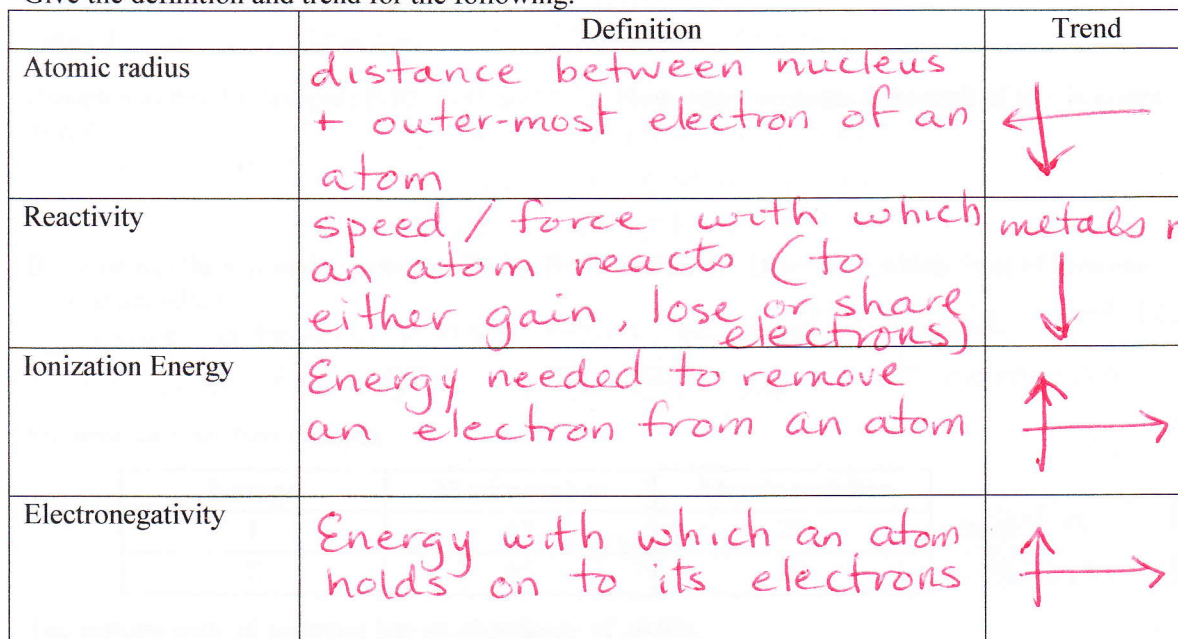 Give the definition and trend for the following:
Definition
Trend
Atomic radius
distance between nucleus
+ outer-most electron of an
atom
Reactivity
speed / force with which
an atom reacts (to
either gain, lose or share
electrons)
metals
Ionization Energy
Energy needed to remove
an electron from an atom
Electronegativity
Energy with which an atom
holds on to its electrons